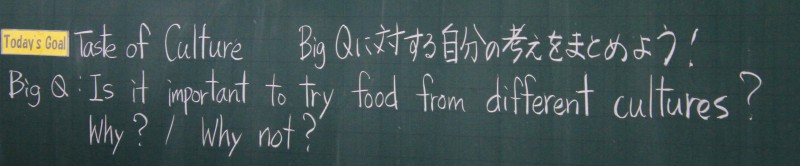 Today's Goal Taste of Culture Big Qに対する自分の考えをまとめよう!
Big Q: Is it important to try food from different cultures?
Why? / Why not?